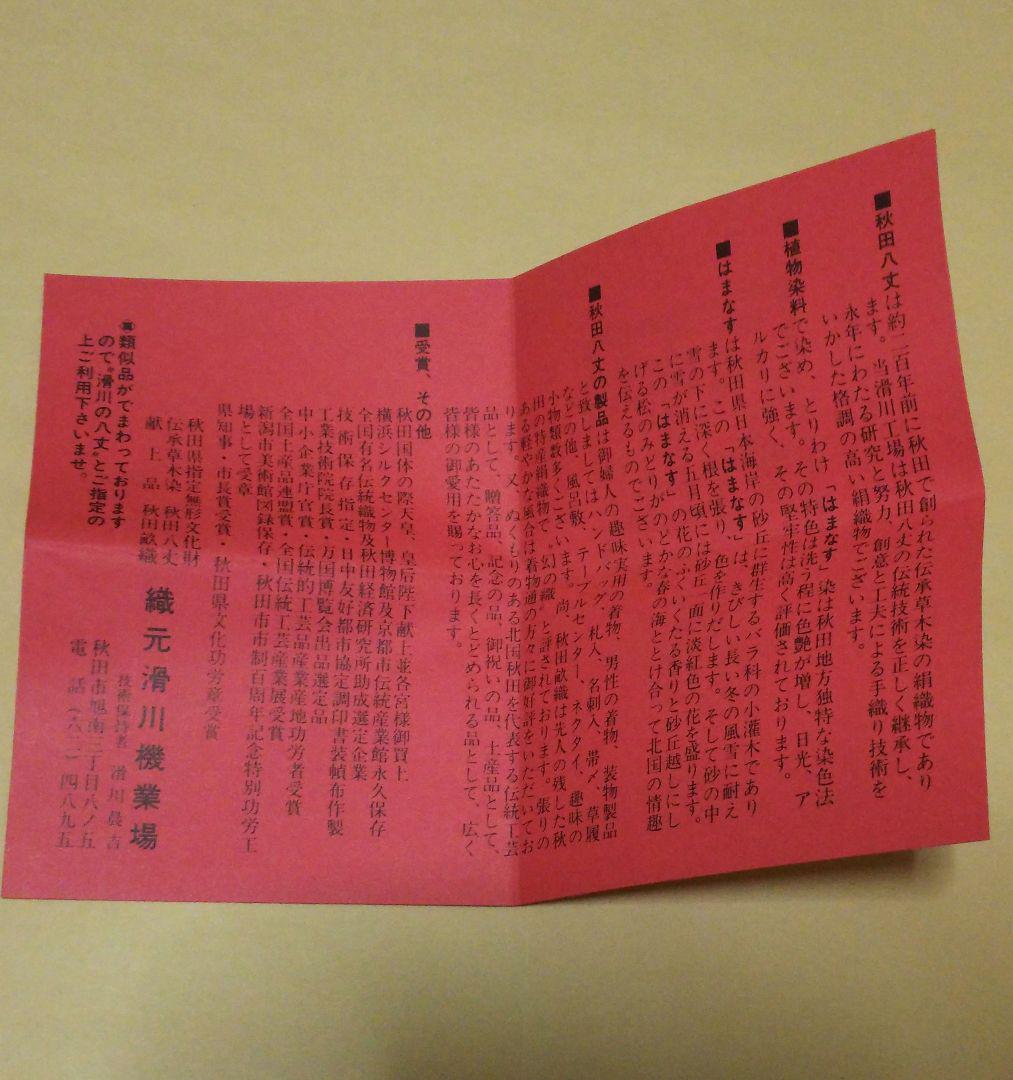 ■秋田八丈は約二百年前に秋田で創られた伝承草木染の絹織物であり
ます。当滑川工場は秋田八丈の伝統技術を正しく継承し、
永年にわたる研究と努力、創意と工夫による手織り技術を
いかした格調の高い絹織物でございます。
■植物染料で染め、とりわけ「はまなす」染は秋田地方独特な染色法
でございます。その特色は洗う程に色艶が増し、日光、ア
ルカリに強く、その堅牢性は高く評価されております。
■はまなすは秋田県日本海岸の砂丘に群生するバラ科の小灌木であり
ます。この「はまなす」は、きびしい長い冬の風雪に耐え
雪の下に深く根を張り、色を作りだします。そして砂の中
に雪が消える五月頃には砂丘一面に淡紅色の花を盛ります。
この「はまなす」の花のふくいくたる香りと砂丘越しにし
げる松のみどりがのどかな春の海ととけ合って北国の情趣
を伝えるものでございます。
■秋田八丈の製品は御婦人の趣味実用の着物、男性の着物、装物製品
と致しましてはハンドバッグ、札入、名刺入、帯〆、草履
などの他、風呂敷、テーブルセンター、ネクタイ、趣味の
小物類数多くございます。尚、秋田畝織は先人の残した秋
田の特産絹織物で、〝幻の織〟と評されております。張りの
ある軽やかな風合は着物通の方々に御好評をいただいてお
ります。又、ぬくもりのある北国秋田を代表する伝統工芸
品として、贈答品、記念の品、御祝いの品、土産品として、
皆様のあたたかなお心を長くとどめられる品として、広く
皆様の御愛用を賜っております。
■受賞、その他
秋田国体の際天皇、皇后陛下献上並各宮様御買上
横浜シルクセンター博物館及京都市伝統産業館永久保存
全国有名伝統織物及秋田経済研究所助成選定企業
技術保存指定・日中友好都市協定調印書装幀布作製
工業技術院院長賞・万国博覧会出品選定品
中小企業庁官賞・伝統的工芸品産業産地功労者受賞
全国土産品連盟賞・全国伝統工芸産業展受賞
新潟市美術館図録保存・秋田市市制百周年記念特別功労工
場として受章
県知事・市長賞受賞、秋田県文化功労章受賞
秋田県指定無形文化財
伝承草木染 秋田八丈
献上品 秋田畝織
織元滑川機業場
技術保持者 滑川晨吉
秋田市旭南二丁目八ノ五
電話(六二)四八九五
類似品がでまわっております
ので〝滑川の八丈〟とご指定の
上ご利用下さいませ。